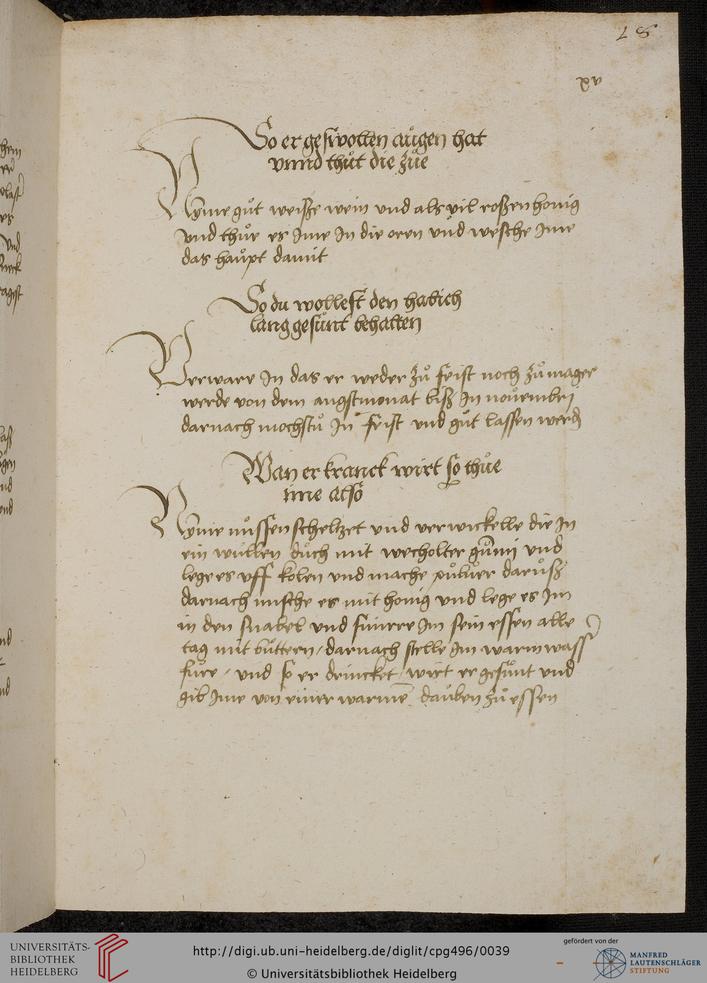 18
xv
So er geswollen augen hat
vnnd thůt die zůe
Nyme gůt weisße wein vnd als vil roßen honig
vnd thůe es Jme Jn die oren vnd wesche Jme
das haůpt damit
So du wollest den habich
lang gesůnt behalten
Verware Jn das er weder zů feist noch zů mager
werde von dem augstmonat biß Jn nouembrj
darnach mochstů Jn feist vnd gůt lassen werd
Wan er kranck wirt so thůe
ime also
Nyme nůssen scheltzet vnd verwickelle die Jn
ein wullen důch mit wecholter gům̃i vnd
lege es vff kolen vnd mache puluer darůß
darnach mische es mit honig vnd lege es Jm
in den snabel vnd smirre Jm sein essen alle
tag mit buttern / darnach stelle Jm warm wass
fůre / vnd so er drincket / wirt er gesůnt vnd
gib Jme von einer warme daůben zů essen
UNIVERSITÄTS-
BIBLIOTHEK
HEIDELBERG
http://digi.ub.uni-heidelberg.de/diglit/cpg496/0039
© Universitätsbibliothek Heidelberg
gefördert von der
MANFRED
LAUTENSCHLÄGER
STIFTUNG